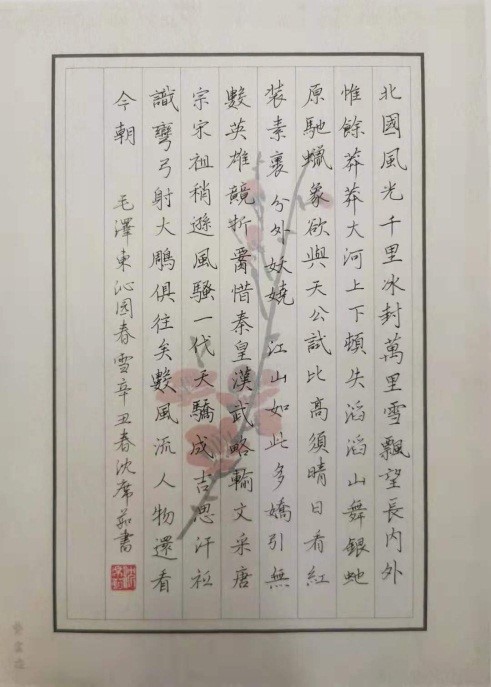 北國風光千里冰封萬里雪飄望長內外
惟餘莽莽大河上下頓失滔滔山舞銀虵
原馳蠟象欲與天公試比高須晴日看紅
装素裹分外妖嬈 江山如此多嬌引無
數英雄競折腰惜秦皇漢武略輸文采唐
宗宋祖稍遜風騷一代天驕成吉思汗祗
識彎弓射大鵰俱往矣數風流人物還看
今朝 毛澤東沁园春雪辛丑春沈席茹書